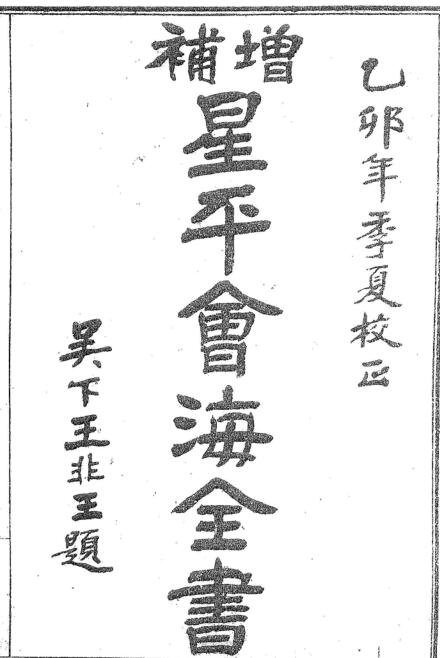 乙卯年季夏校正
增補
星平會海全書
吴下王非王題